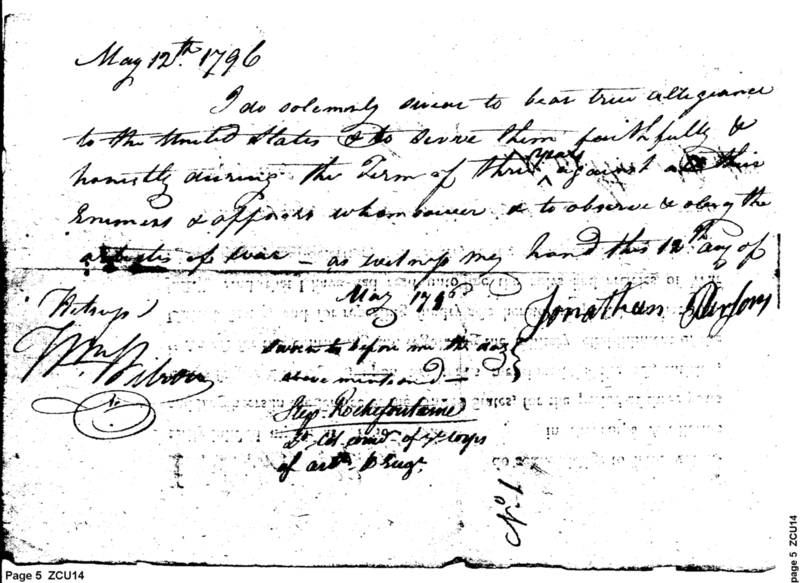 May 12th 1796
I do solemnly swear to bear true allegiance
to the United States & to serve them faithfully &
honestly during the Term of three years against all their
Enimies & opposers whomsoever & to observe & obey the
articles of war – as witness my hand this 12th day of
May 1796
Jonathan Parsons
Witness
Wm
sworn to before me the day
above mentioned –
Step. Rochefontaine
Lt Col comdt of ye corps
of artts & Engr.
No. 1
Page 5 ZCU14
page 5 ZCU14